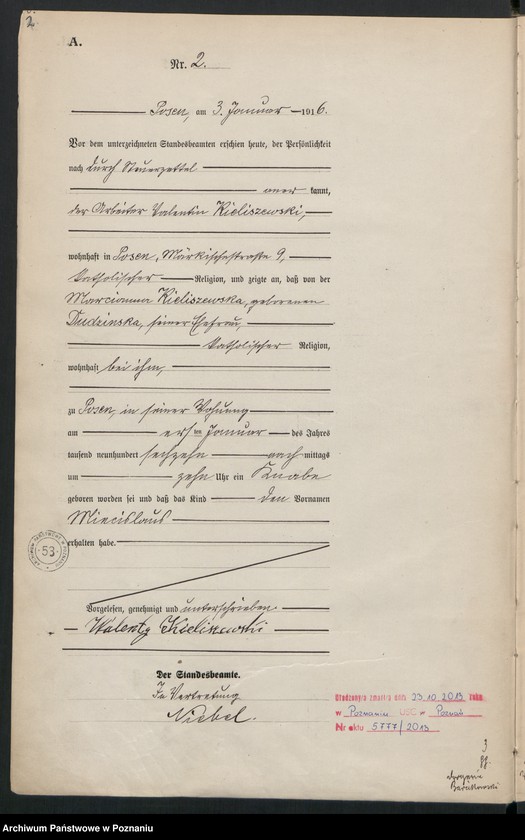 2.
A.
Nr. 2.
Posen, am 3. Januar 1916.
Vor dem unterzeichneten Standesbeamten erschien heute, der Persönlichkeit
nach durch Steuerzettel
aner kannt,
der Arbeiter Valentin Kieliszewski,
wohnhaft in Posen, Märkischestraße 9,
katholischer Religion, und zeigte an, daß von der
Marcianna Kieliszewska, geborenen
Dudzinska, seiner Ehefrau,
katholischer Religion,
wohnhaft bei ihm,
zu Posen, in seiner Wohnung
am ersten Januar des Jahres
tausend neunhundert sechzehn nachmittags
um zehn Uhr ein Knabe
geboren worden sei und daß das Kind den Vornamen
Miecislaus
erhalten habe.
53
Vorgelesen, genehmigt und unterschrieben
Walenty Kieliszewski
Der Standesbeamte.
In Vertretung
Niebel.
Urodzony/a zmarł/a dnia 23.10.2013 roku
w Poznaniu USC w Poznań
Nr aktu 5777/2013
3
Archiwum Państwowe w Poznaniu